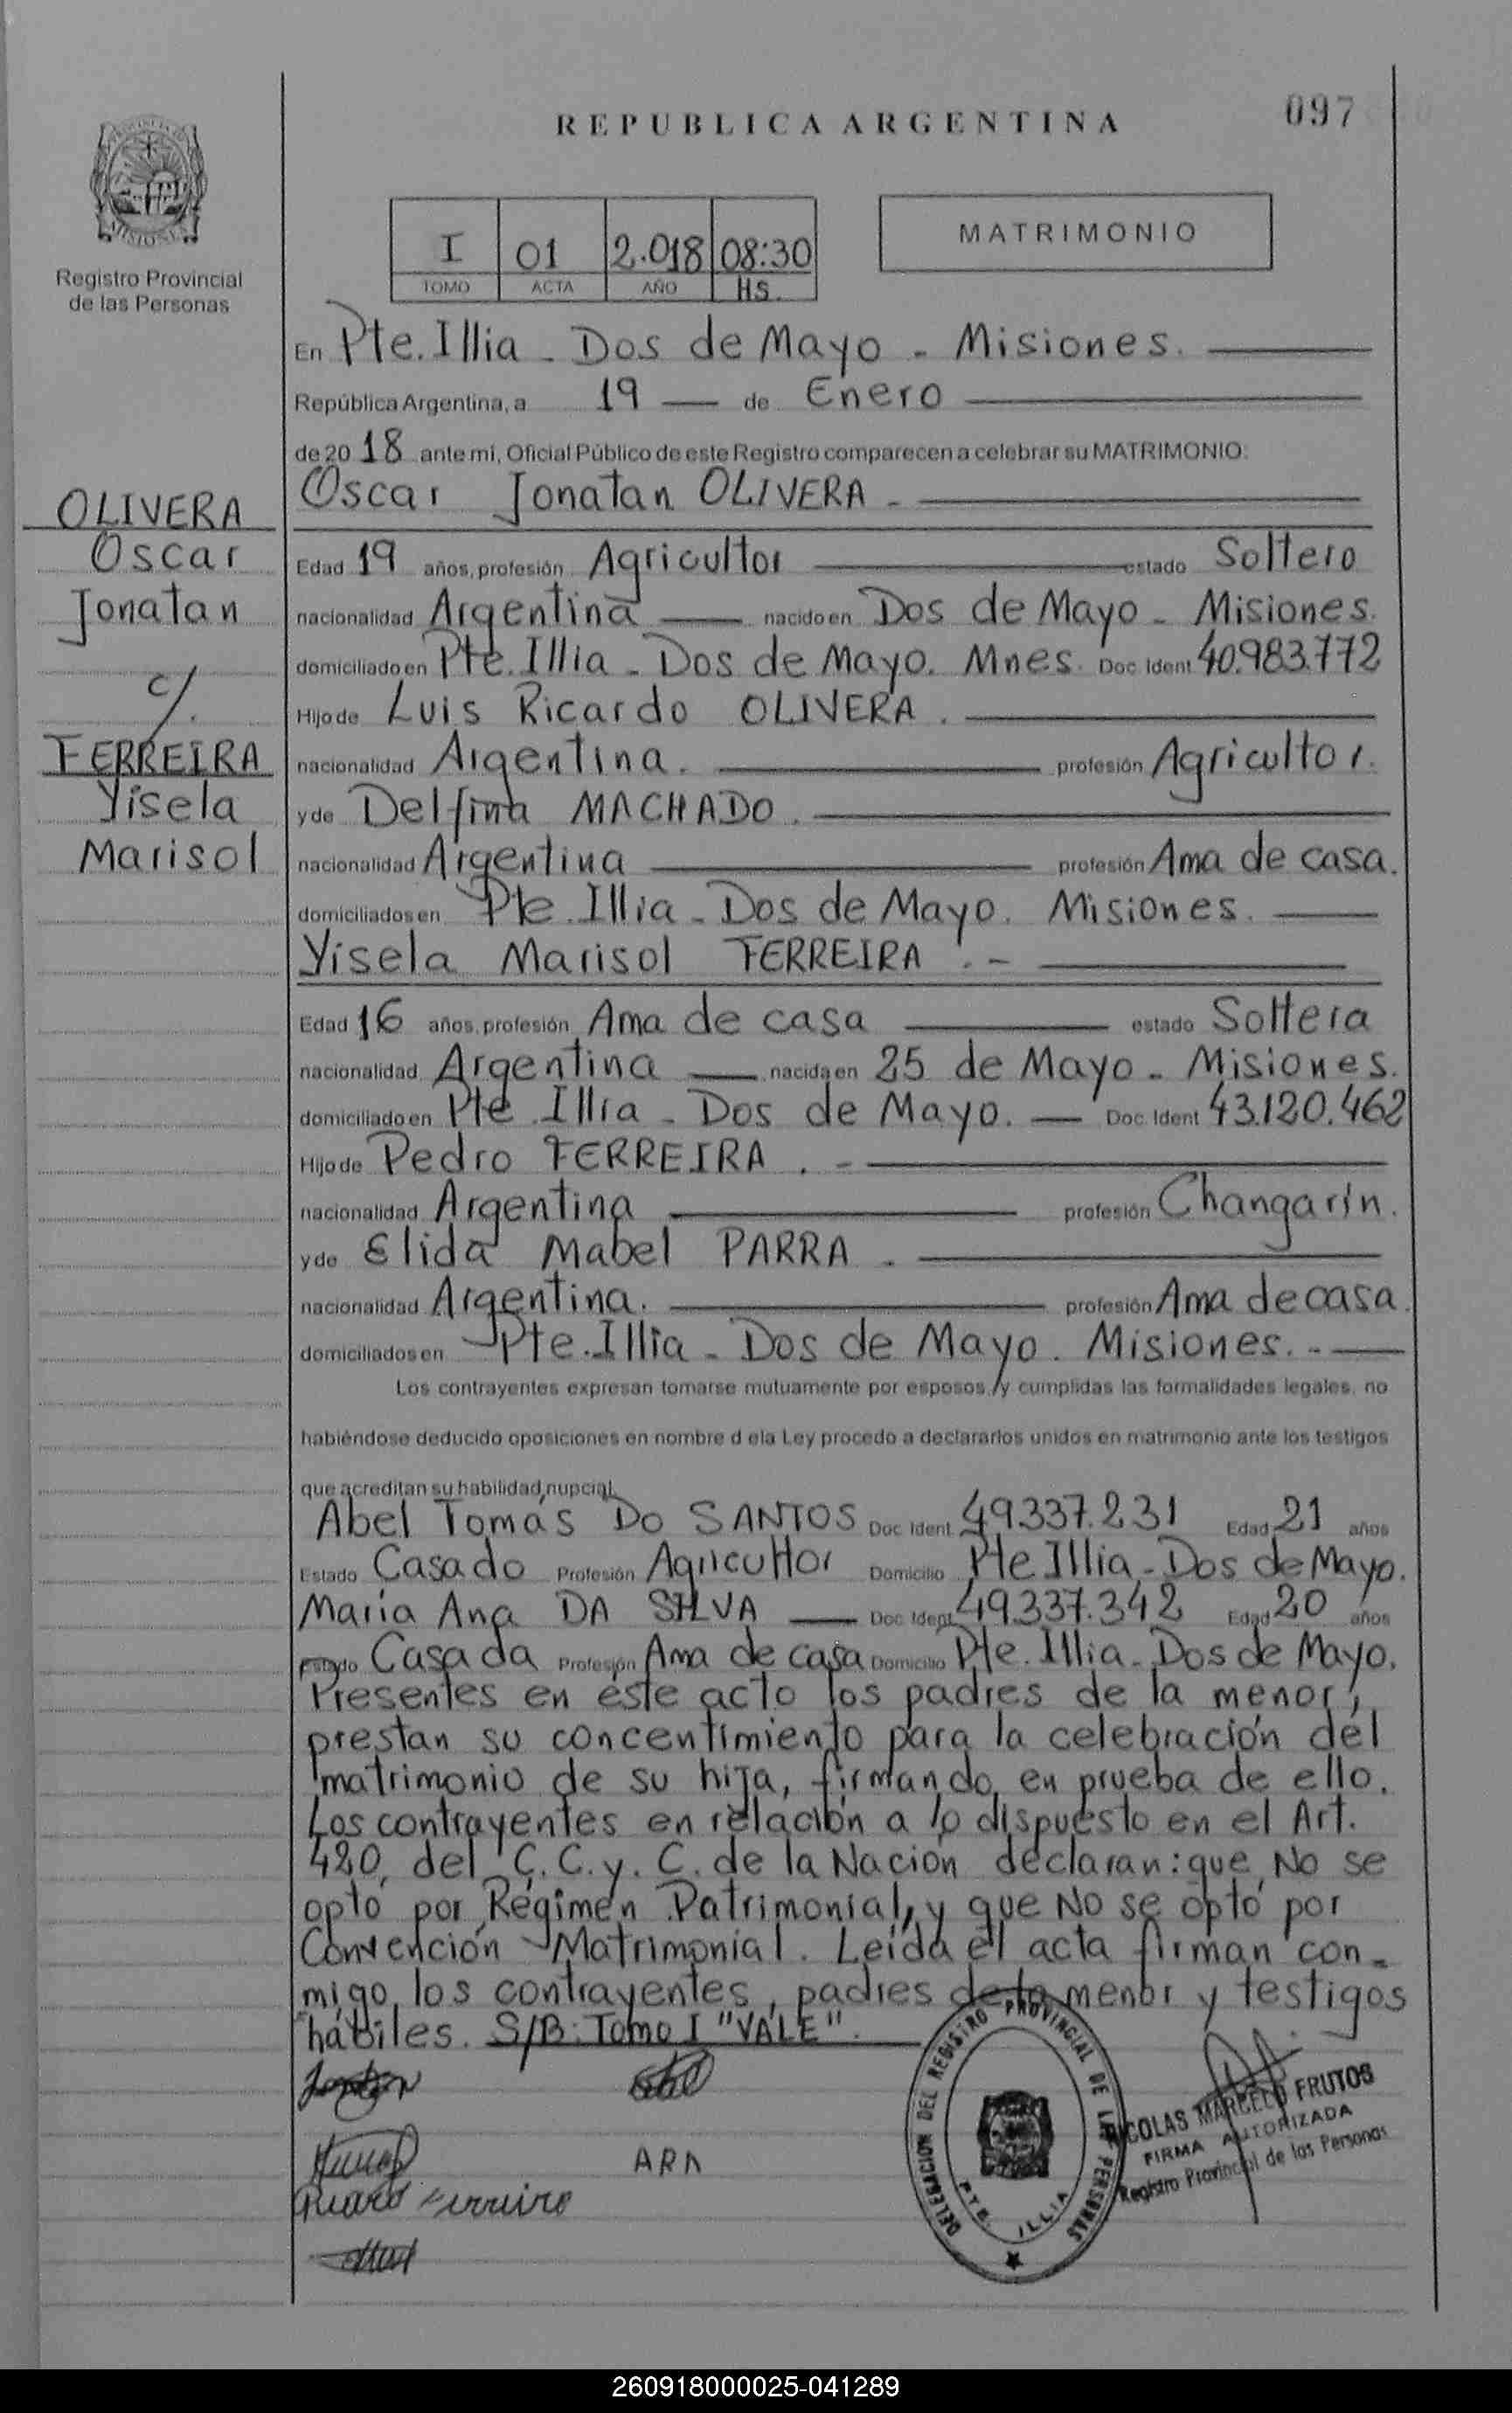 REPUBLICA ARGENTINA
097
MISIONES
Registro Provincial
de las Personas
I 01 2.018 08:30
TOMO ACTA AÑO HS.
MATRIMONIO
En Pte. Illia - Dos de Mayo - Misiones.
República Argentina, a 19 de Enero
de 20 18 ante mi, Oficial Público de este Registro comparecen a celebrar su MATRIMONIO:
OLIVERA
Oscar
Jonatan
c/.
FERREIRA
Yisela
Marisol
Oscar Jonatan OLIVERA -
Edad 19 años, profesión Agricultor estado Soltero
nacionalidad Argentina nacido en Dos de Mayo - Misiones.
domiciliado en Pte. Illia - Dos de Mayo. Mnes. Doc. Ident 40.983.772
Hijo de Luis Ricardo OLIVERA.
nacionalidad Argentina. profesión Agricultor.
y de Delfina MACHADO.
nacionalidad Argentina profesión Ama de casa.
domiciliados en Pte. Illia - Dos de Mayo. Misiones.
Yisela Marisol FERREIRA .-
Edad 16 años, profesión Ama de casa estado Soltera
nacionalidad Argentina nacida en 25 de Mayo - Misiones.
domiciliado en Pte. Illia - Dos de Mayo. Doc. Ident 43.120.462
Hijo de Pedro FERREIRA . -
nacionalidad Argentina profesión Changarín.
y de Elida Mabel PARRA -
nacionalidad Argentina. profesión Ama de casa.
domiciliados en Pte. Illia - Dos de Mayo. Misiones. -
Los contrayentes expresan tomarse mutuamente por esposos, y cumplidas las formalidades legales, no
habiéndose deducido oposiciones en nombre d ela Ley procedo a declararlos unidos en matrimonio ante los testigos
que acreditan su habilidad nupcial
Abel Tomás Do SANTOS Doc. Ident. 49.337.231 Edad 21 años
Estado Casado Profesión Agricultor Domicilio Pte Illia - Dos de Mayo.
María Ana DA SILVA Doc. Ident 49.337.342 Edad 20 años
Estado Casada Profesión Ama de casa Domicilio Pte. Illia - Dos de Mayo.
Presentes en éste acto los padres de la menor,
prestan su concentimiento para la celebración del
matrimonio de su hija, firmando en prueba de ello.
Los contrayentes en relación a lo dispuesto en el Art.
420, del C.C.y.C. de la Nación declaran: que No se
optó por Régimen Patrimonial, y que No se optó por
Convención Matrimonial. Leída el acta firman con-
migo los contrayentes, padres de la menor y testigos
hábiles. S/B: Tomo I "VALE".
ARA
DELEGACION DEL REGISTRO PROVINCIAL DE LAS PERSONAS
PTE. ILLIA
NICOLAS MARCELO FRUTOS
FIRMA AUTORIZADA
Registro Provincial de las Personas
260918000025-041289